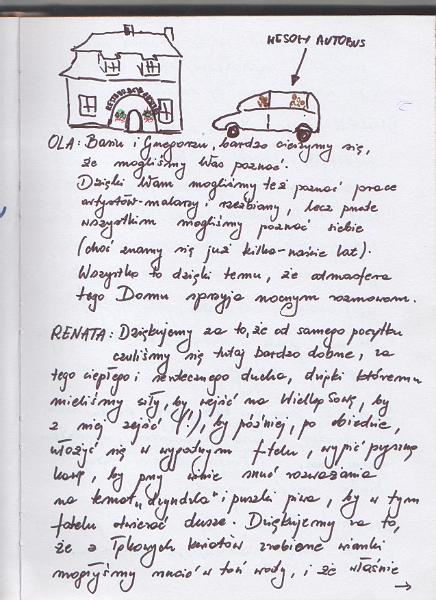 WESOŁY AUTOBUS
OLA: Basiu i Grzegorzu, bardzo cieszymy się,
że mogliśmy Was poznać.
Dzięki Wam mogliśmy też poznać prace
artystów-malarzy i rzeźbiarzy, lecz przede
wszystkim mogliśmy poznać siebie
(choć znamy się już kilka-naście lat).
Wszystko to dzięki temu, że atmosfera
tego Domu sprzyja nocnym rozmowom.
RENATA: Dziękujemy za to, że od samego początku
czuliśmy się tutaj bardzo dobrze, za
tego ciepłego i serdecznego ducha, dzięki któremu
mieliśmy siły, by wejść na Wielką Sowę, by
z niej zejść (!), by później, po obiedzie,
włożyć się w wygodnym fotelu, wypić pyszną
kawę, by przy winie snuć rozważania
na temat „dzyndzla" i puszki piwa, by w tym
fotelu otwierać dusze. Dziękujemy za to,
że z łąkowych kwiatów zrobione wianki
mogłyśmy rzucić w toń wody, i że właśnie
→